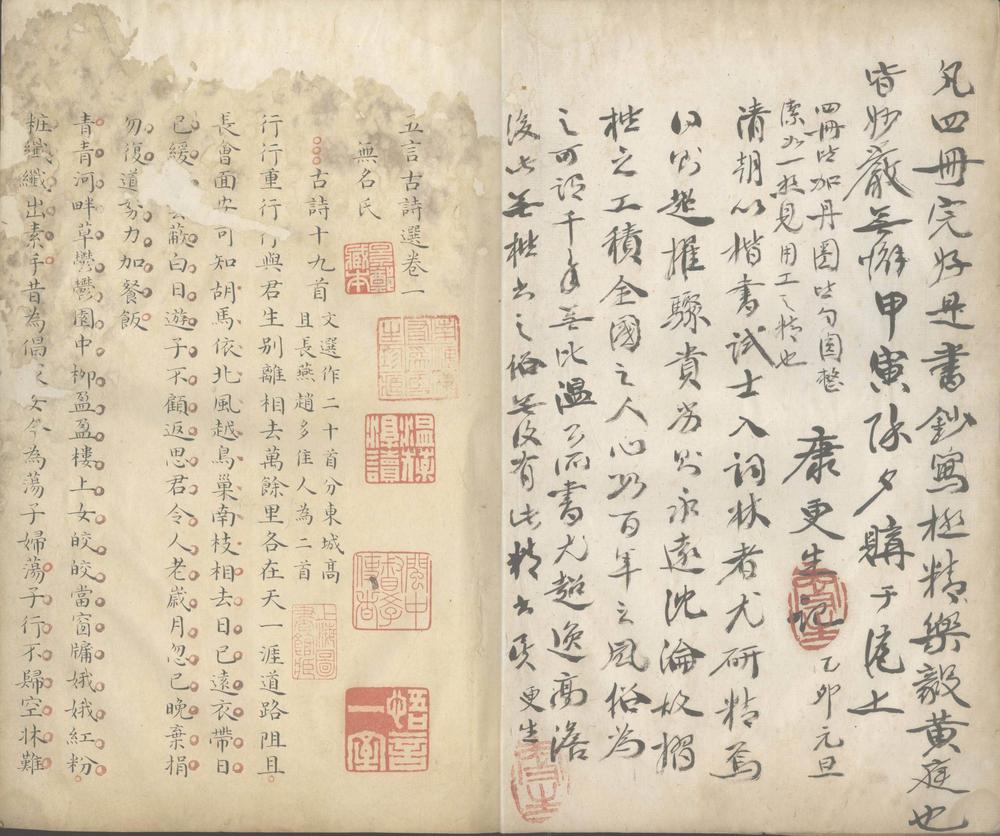 凡四冊完好其書鈔寫極精樂毅黃庭也
皆妙嚴無懈甲寅除夕購于滬上
四冊皆加丹圈皆句圈整
潔如一想見用工之精也
康更生記
乙卯元旦
清朝以楷書試士入詞林者尤研精焉
以別超擢驟貴劣則永遠沈淪故摺
楷之工積全國之人心數百年之風俗為
之可謂千年無比溫公所書尤超逸高澹
後此無楷書之俗無復有此精書矣 更生
五言古詩選卷一
無名氏
古詩十九首
文選作二十首分東城高
且長燕趙多佳人為二首
行行重行行與君生別離相去萬餘里各在天一涯道路阻且
長會面安可知胡馬依北風越鳥巢南枝相去日已遠衣帶日
已緩 雲蔽白日遊子不顧返思君令人老歲月忽已晚棄捐
勿復道努力加餐飯
青青河畔草鬱鬱園中柳盈盈樓上女皎皎當窗牖娥娥紅粉
粧纖纖出素手昔為倡 女今為蕩子婦蕩子行不歸空牀難